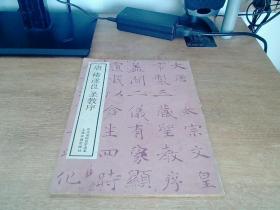 唐褚遂良圣教序
大唐太宗文皇
帝製三藏聖教序
盖聞二儀有象顯
覆載以含生四時
化